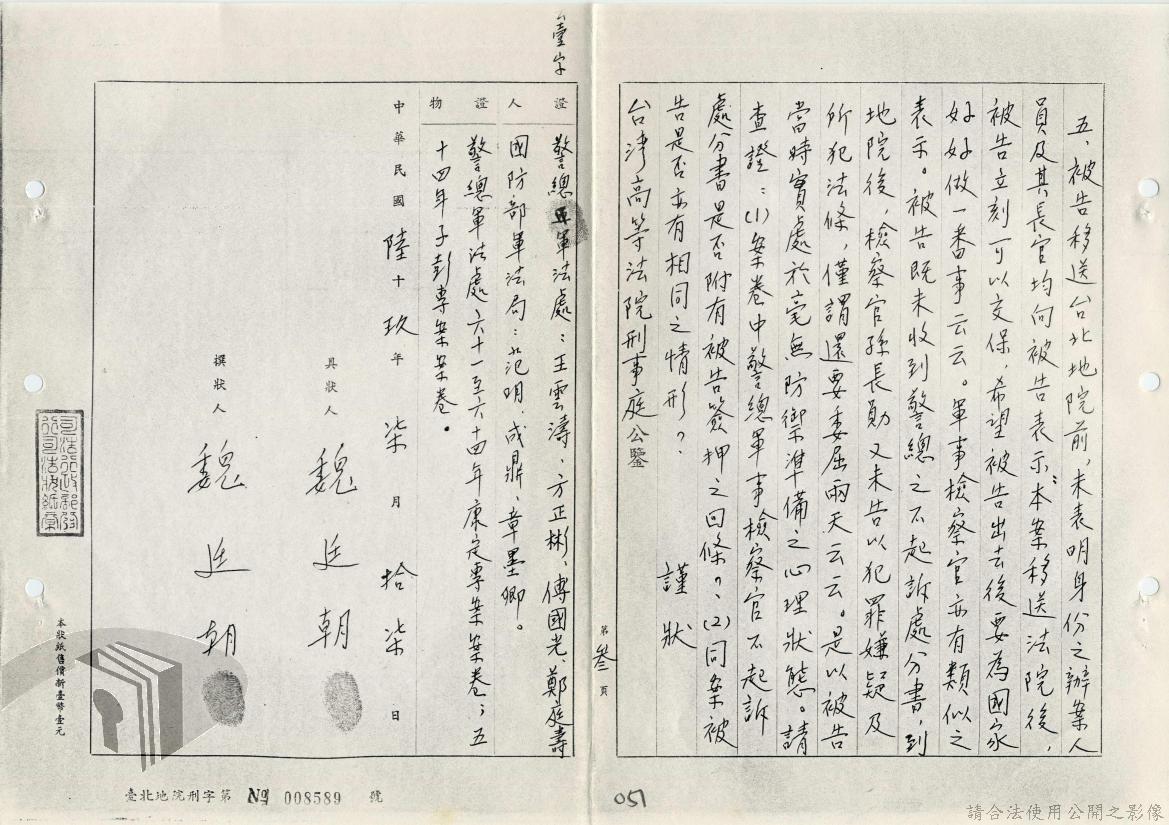 五、被告移送台北地院前，未表明身份之辦案人
員及其長官均向被告表示："本案移送法院後，
被告立刻可以交保，希望被告出去後要為國家
好好做一番事云云。軍事檢察官亦有類似之
表示。被告既未收到警總之不起訴處分書，到
地院後，檢察官孫長勛又未告以犯罪嫌疑及
所犯法條，僅謂還要委屈兩天云云。是以被告
當時實處於毫無防禦準備之心理狀態。請
查證：(1)案卷中警總軍事檢察官不起訴
處分書是否附有被告簽押之回條？、(2)同案被
告是否亦有相同之情形？
謹狀
台灣高等法院刑事庭公鑒
第叁頁
051
臺字
證人
證物
警總軍法處：王雲濤、方正彬、傅國光、鄭莛壽
國防部軍法局：范明、成鼎、章墨卿。
警總軍法處六十一至六十四年康定專案案卷；五
十四年子彭專案案卷。
中華民國陸十玖年柒月拾柒日
具狀人 魏廷朝
撰狀人 魏廷朝
司法行政部發
行司法狀紙章
本狀紙售價新臺幣壹元
臺北地院刑字第 № 008589 號
請合法使用公開之影像